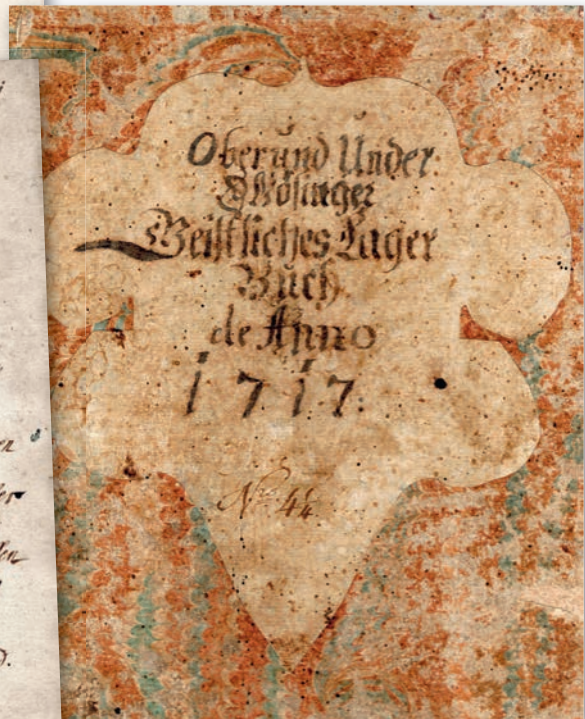 Ober und Under
Geistliches Lager
Buch
de Anno
1717.
Nro. 44